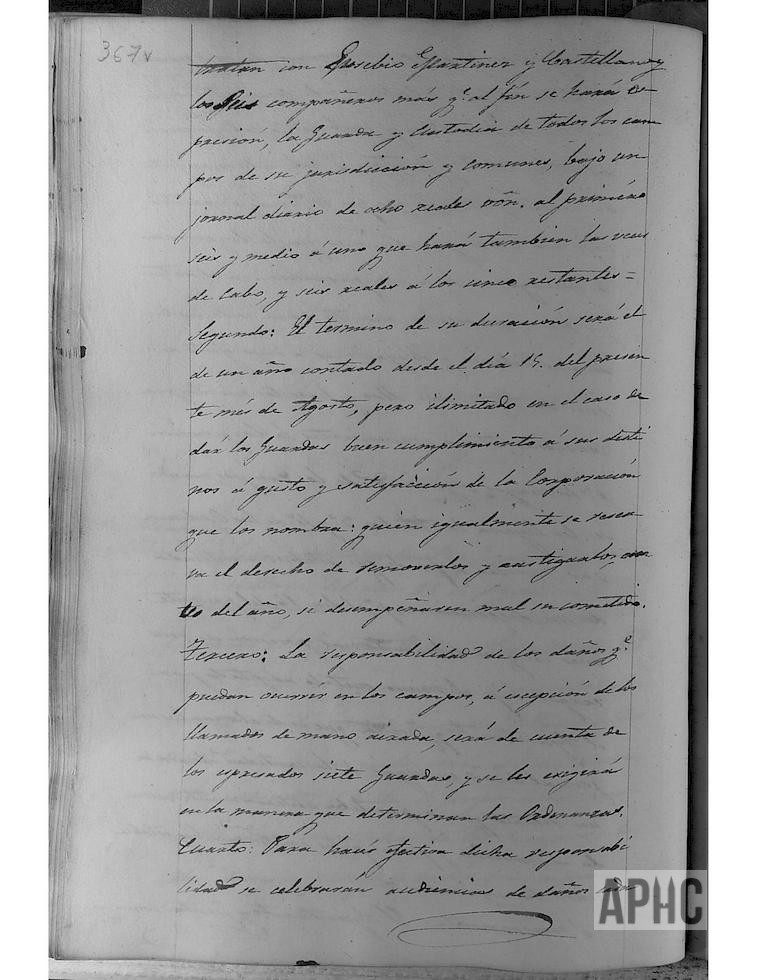 367v
tratan con Eusebio Martinez y Castellanos y
los seis compañeros más q.e al fin se hará es-
presión, la Guarda y Custodia de todos los cam
pos de su jurisdicción y comunes, bajo un
jornal diario de ocho reales vón. al primero
seis y medio á uno que hará tambien las veces
de Cabo, y seis reales á los cinco restantes=
Segundo: El termino de su duración será el
de un año contado desde el día 15. del presen
te més de Agosto, pero ilimitado en el caso de
dar los Guardas buen cumplimiento á sus desti
nos á gusto y satisfacción de la Corporación
que los nombra: quien igualmente se reser
va el derecho de removerlos y castigarlos, den
tro del año, si desempeñasen mal su cometido.
Tercero: La responsabilidad de los daños q.e
puedan ocurrir en los campos, á escepción de los
llamados de mano airada, será de cuenta de
los espresados siete Guardas, y se les exigirá
en la manera que determinan las Ordenanzas.
Cuarto: Para hacer efectiva dicha responsabi
lidad se celebrarán audiencias de daños cada
APHC